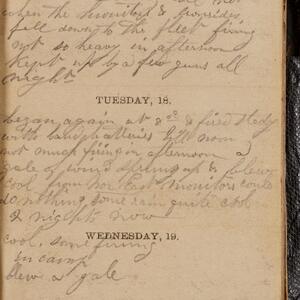 when the Monitors &
fell down to the fleet firing
not so heavy in afternoon
Kept up by a few guns all
night
TUESDAY, 18.
began again at 8 & fired stedy
with land batteries till noon
not much firing in afternoon a
gale of wind sprung up & blew
cool from Nor East Monitors could
do nothing some rain quite cool
& nights now
WEDNESDAY, 19.
cool, some firing
in camp
blew a gale